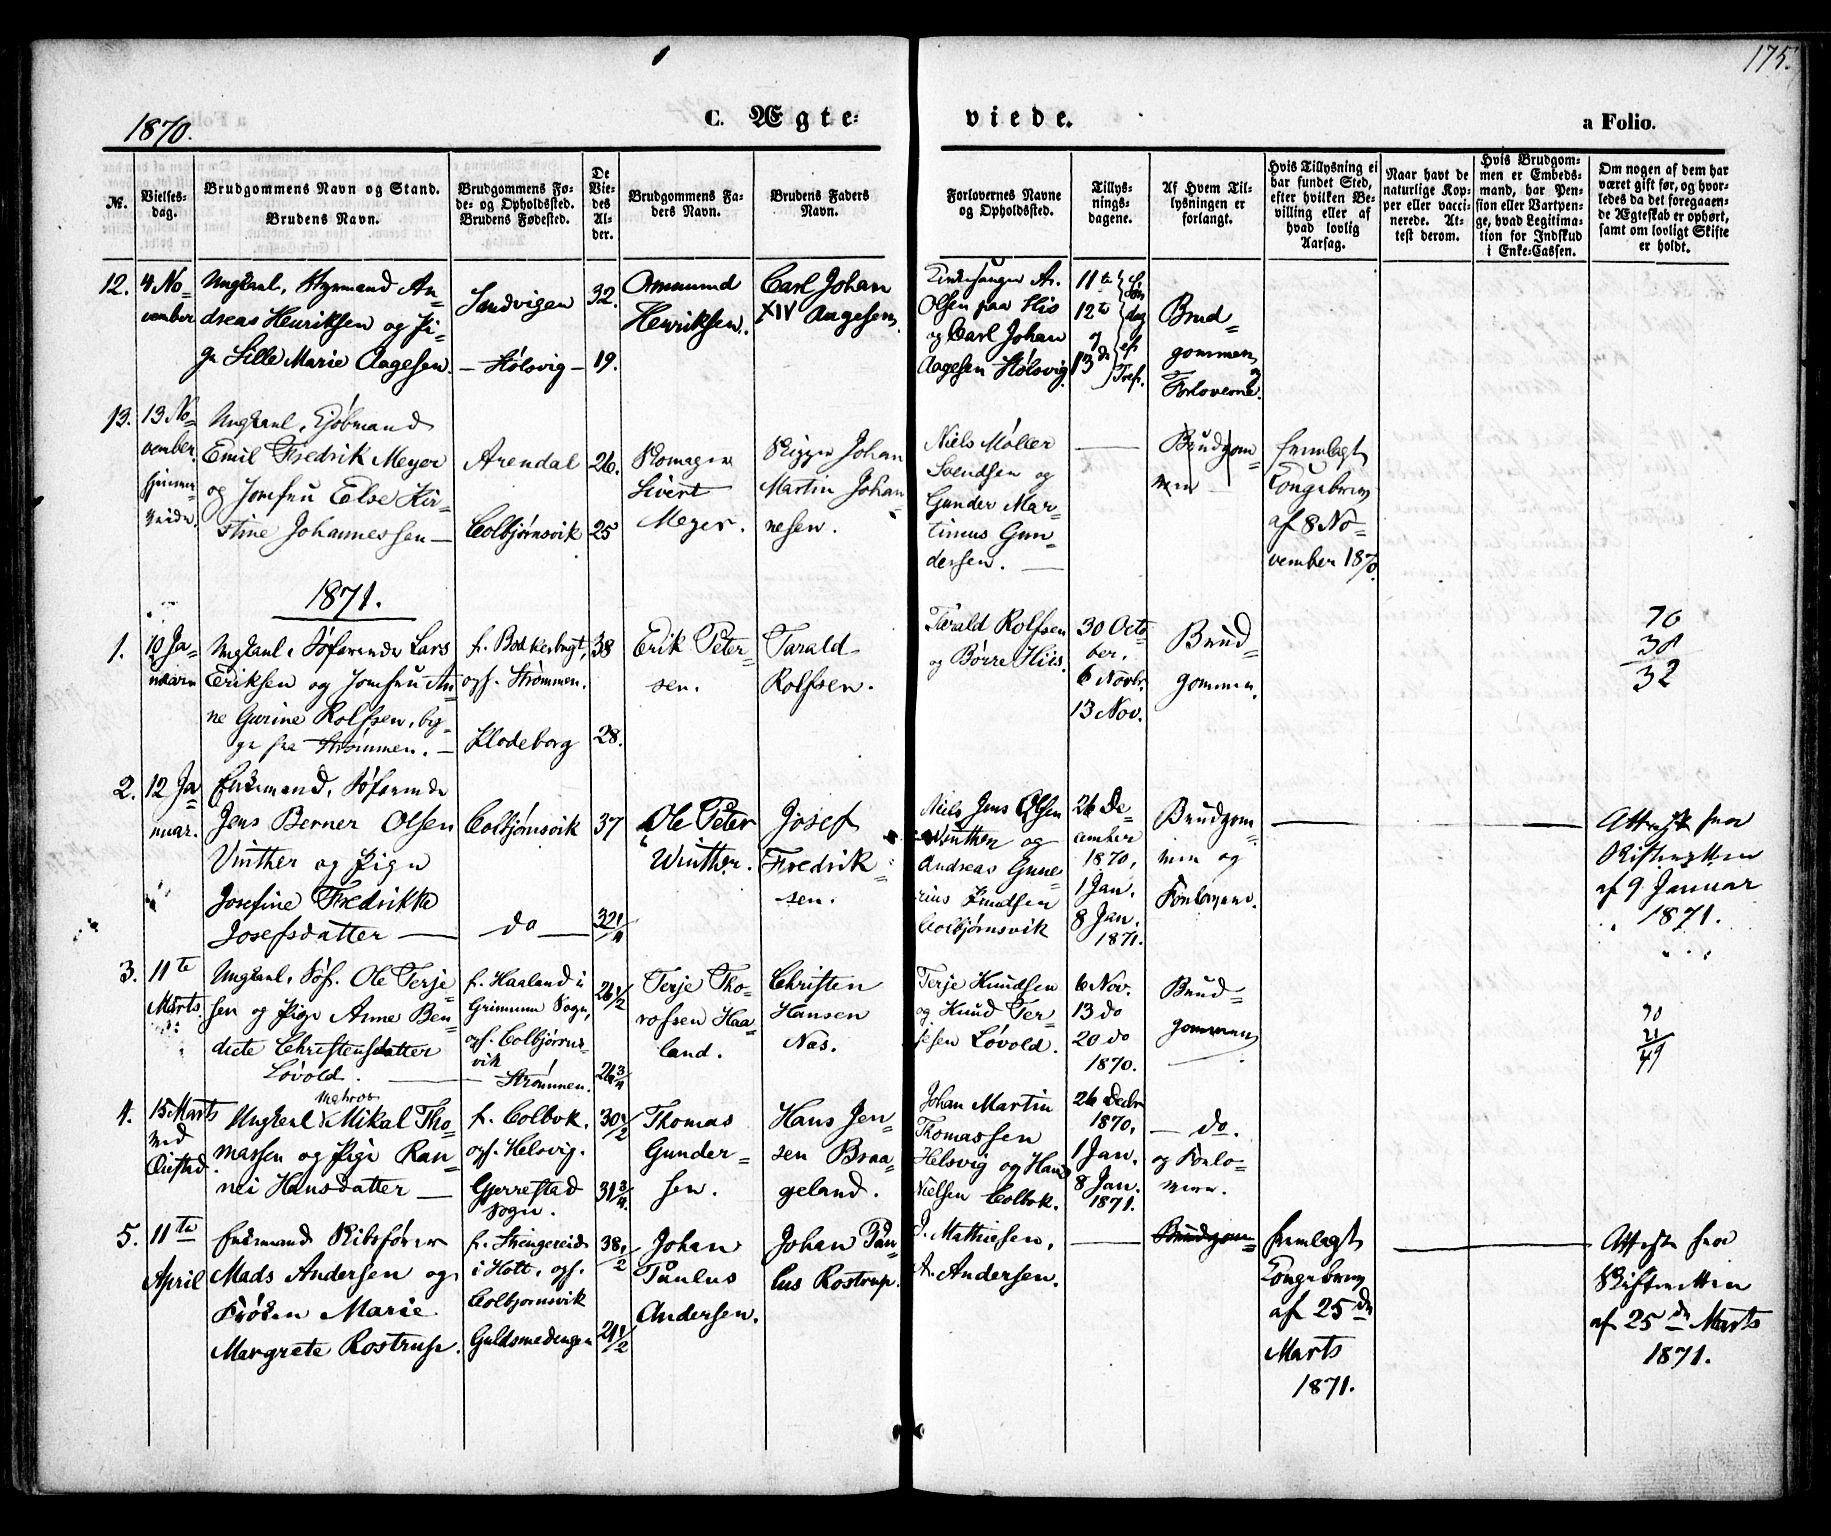 175.
1870.
C. Ægte-
viede.
a Folio.
No.
Vielses-
dag.
Brudgommens Navn og Stand.
Brudens Navn.
Brudgommens Fø-
de- og Opholdssted.
Brudens Fødested.
De
Vie-
des
Al-
der.
Brudgommens Fa-
ders Navn.
Brudens Faders
Navn.
Forlovernes Navne
og Opholdssted.
Tillys-
nings-
dagene.
Af Hvem Til-
lysningen er
forlangt.
Hvis Tillysning ei
har fundet Sted,
efter hvilken Be-
villing eller af
hvad lovlig
Aarsag.
Naar havt de
naturlige Kop-
per eller vacci-
nerede. At-
test derom.
Hvis Brudgom-
men er Embeds-
mand, har Pen-
sion eller Vartpen-
ge, hvad Legitima-
tion for Indskud
i Enke-Cassen.
Om nogen af dem har
været gift før, og hvor-
ledes da det foregaaen-
de Ægteskab er ophørt,
samt om lovligt Skifte
er holdt.
12.
4 No-
vember
Ungkarl, Styrmand An-
dreas Henriksen og Pi-
ge Sille Marie Aagesen.
Sandvigen
— Hølsvig —
32.
19.
Ommund
Henriksen.
Carl Johan
XIV Aagesen.
Kirkesanger A.
Olsen paa His
og Carl Johan
Aagesen Hølsvig.
11te
12te
13de
Søn
dag
ef.
Tref.
Brud-
gommen
og
Forloverne.
13.
13 No-
vember
hjemme-
viede.
Ungkarl, Kjøbmand
Emil Fredrik Meyer
og Jomfru Else Kir-
stine Johannessen —
Arendal
Colbjørnsvik
26.
25
Sivert
Meyer.
Rigger Johan
Martin Johan-
nesen.
Niels Møller
Svendsen og
Gunder Mar-
tinius Gun-
dersen. —
Brudgom-
men
fremlagt
Kongebrev
af 8 No-
vember 1870.
1871.
1.
10 Ja-
nuar
Ungkarl, Søfarende Lars
Eriksen og Jomfru An-
ne Gurine Rolfsen, beg-
ge fra Strømmen. —
f. Bokkerbugt,
opf. Strømmen.
Klodeborg
38
28.
Erik Peter-
sen.
Tarald
Rolfsen.
Tarald Rolfsen
og Børre Hiis.
30 Octo-
ber.
6 Novbr.
13 Nov.
Brud-
gommen.
70
38
32
2.
12 Ja-
nuar.
Enkemand, Søfarende
Jens Berner Olsen
Vinther og Pige
Josefine Fredrikke
Josefsdatter —
Colbjørnsvik
— do —
37
32 1/4
Ole Peter
Winther.
Josef
Fredrik-
sen.
Niels Jens Olsen
Winther og
Andreas Gune-
rius Knudsen
Colbjørnsvik
26 De-
cember
1870,
1 Jan.
8 Jan.
1871.
Brudgom-
men og
Forloverne.
Attest fra
Skifteretten
af 9 Januar
1871.
3.
11te
Marts.
Ungkarl, Søf. Ole Terje-
sen og Pige Anne Ben-
dicte Christensdatter
Løvold. —
f. Haaland i
Grimmum Sogn,
opf. Colbjørns-
vik
Strømmen.
26 1/2
26 3/4
Terje Tho-
rofsen Haa-
land.
Christen
Hansen
Næs.
Terje Knudsen
og Knud Ter-
jesen Løvold.
6 Nov.
13 do
20 do
1870.
Brud-
gommen
70
21
49
4.
15 Marts
ved
Øiestad.
Matros
Ungkarl Mikal Tho-
massen og Pige Ran-
nei Hansdatter —
f. Colbok.
opf. Helsvig.
Gjerrestad
Sogn.
30 1/2
31 3/4
Thomas
Gunder-
sen.
Hans Jen-
sen Braa-
geland.
Johan Martin
Thomassen
Helsvig og Hans
Nielsen Colbok.
26 Decbr
1870,
1 Jan.
8 Jan.
1871.
— do.
og Forlo-
verne.
5.
11te
April
Enkemand Skibsfører
Mads Andersen og
Frøken Marie
Margrete Rostrup.
f. Strengereid
i Holt, opf.
Colbjørnsvik
Guldsmedengen
38 1/2
21 1/2
Johan
Paulus
Andersen.
Johan Pau-
lus Rostrup.
J. Mathiesen,
A. Andersen.
Brudgom-
fremlagt
Kongebrev
af 25de
Marts
1871.
Attest fra
Skifteretten
af 25de Marts
1871.